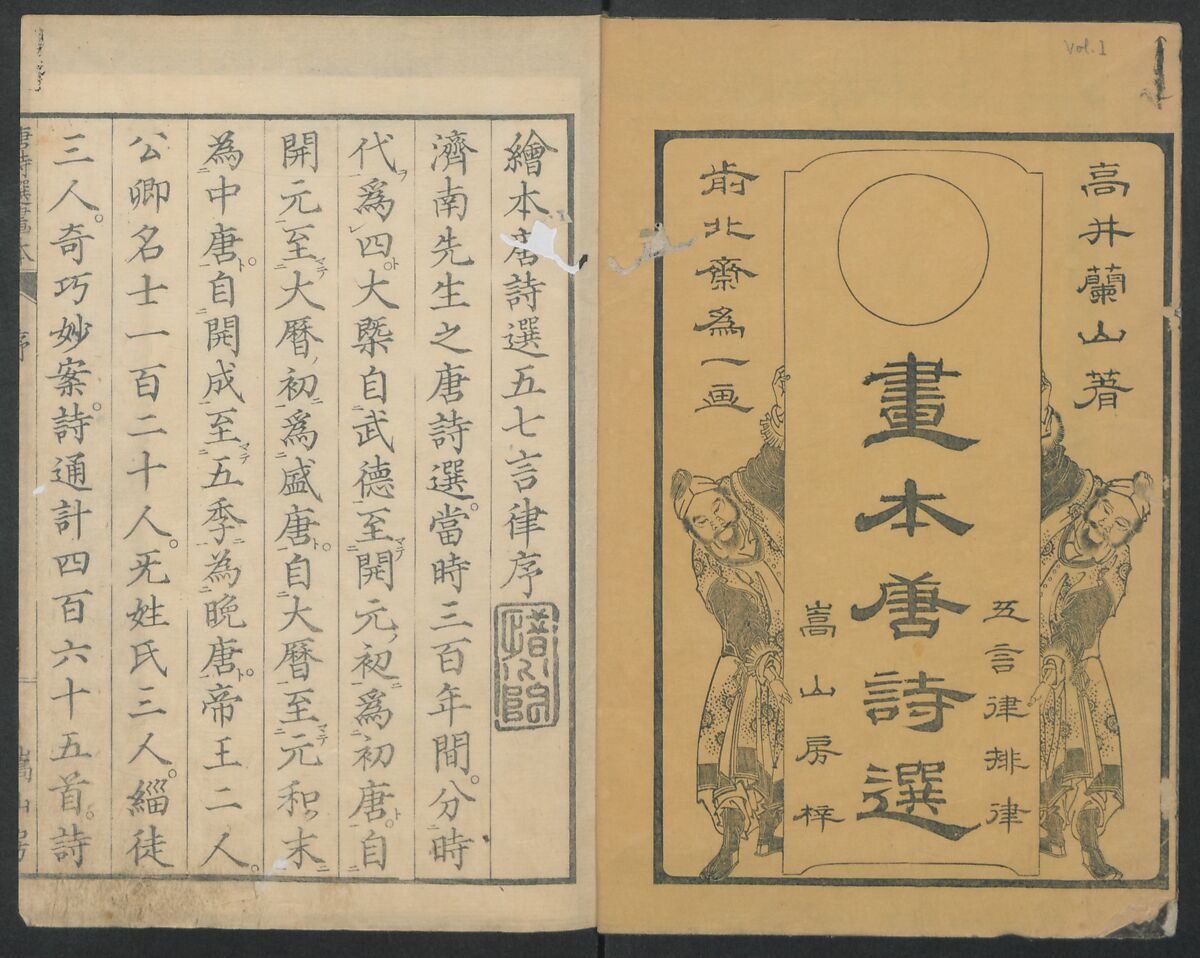 Vol.1
高井蘭山著
五言律排律
畫本唐詩選
嵩山房梓
前北齋為一画
繪本唐詩選五七言律序
濟南先生之唐詩選。當時三百年間。分時
代為四大槩自武德至開元初為初唐自
開元至大曆初為盛唐自大曆至元和末
為中唐自開成至五季為晩唐帝王二人。
公卿名士一百二十人。旡姓氏三人。緇徒
三人。奇巧妙案。詩通計四百六十五首。詩